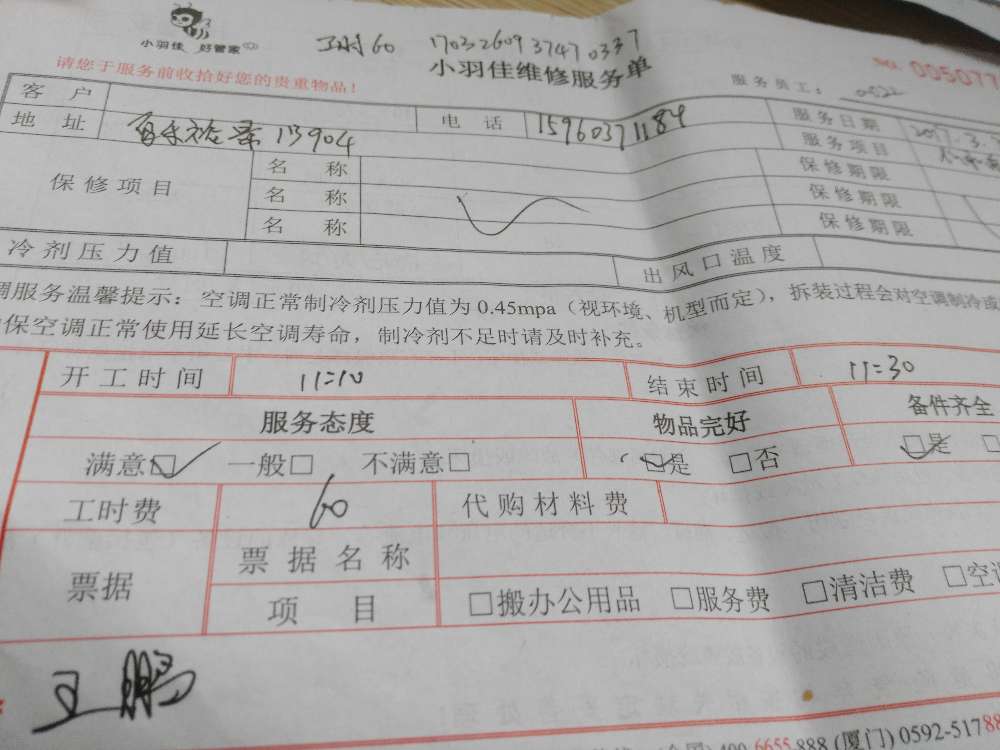 小羽佳 好管家
60 17032609374 70337
小羽佳维修服务单
请您于服务前收拾好您的贵重物品！
服务员工：
005077
客户
电话 15960371184
服务日期 2017.3.
地址 13904
服务项目
保修项目
名称
保修期限
名称
保修期限
名称
保修期限
冷剂压力值
出风口温度
调服务温馨提示：空调正常制冷剂压力值为0.45mpa（视环境、机型而定），拆装过程会对空调制冷或
保空调正常使用延长空调寿命，制冷剂不足时请及时补充。
开工时间 11:10 结束时间 11:30
服务态度 物品完好 备件齐全
满意☑ 一般□ 不满意□ ☑是 □否 ☑是 □
工时费 60 代购材料费
票据
票据名称
项目 □搬办公用品 □服务费 □清洁费 □空调
王鹏
400 6655 888 (厦门) 0592-51788